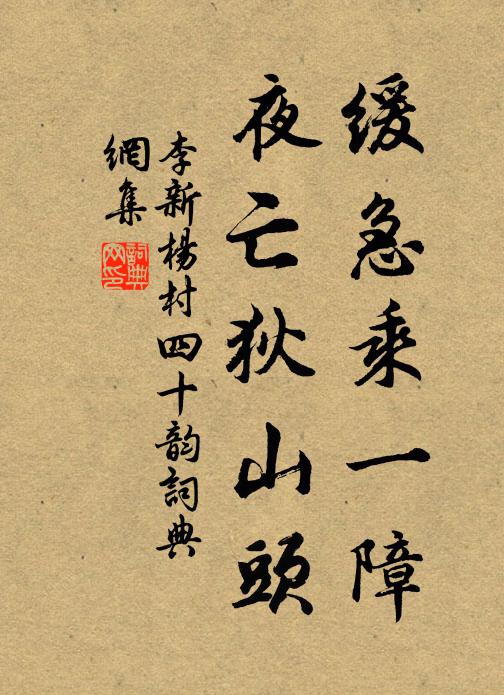 缓急乘一障
夜亡狄山頭
李新楊村四十韵詞典
網集
詞典
网印